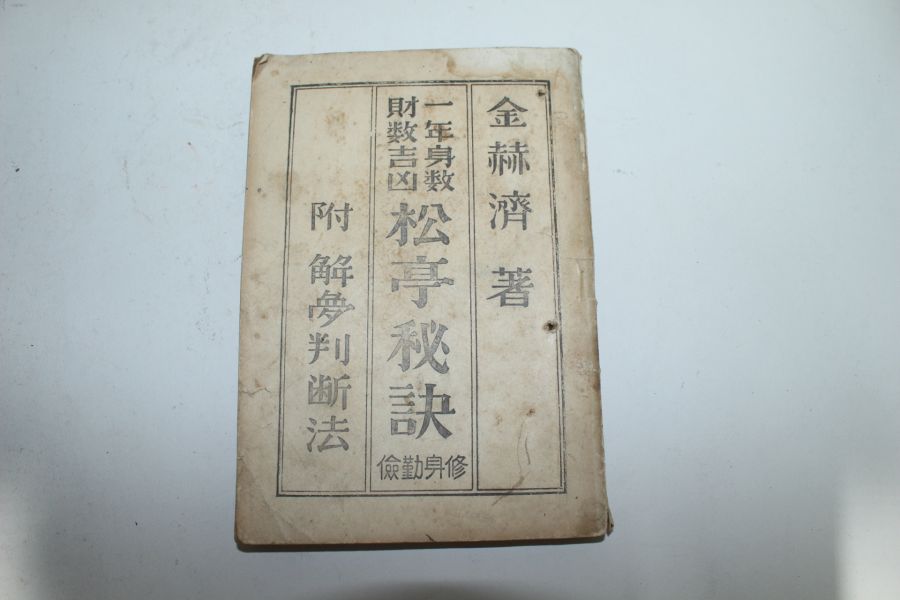 金赫濟 著
一年身数
財数吉凶
松亭秘訣
修身勤儉
附 解夢判断法